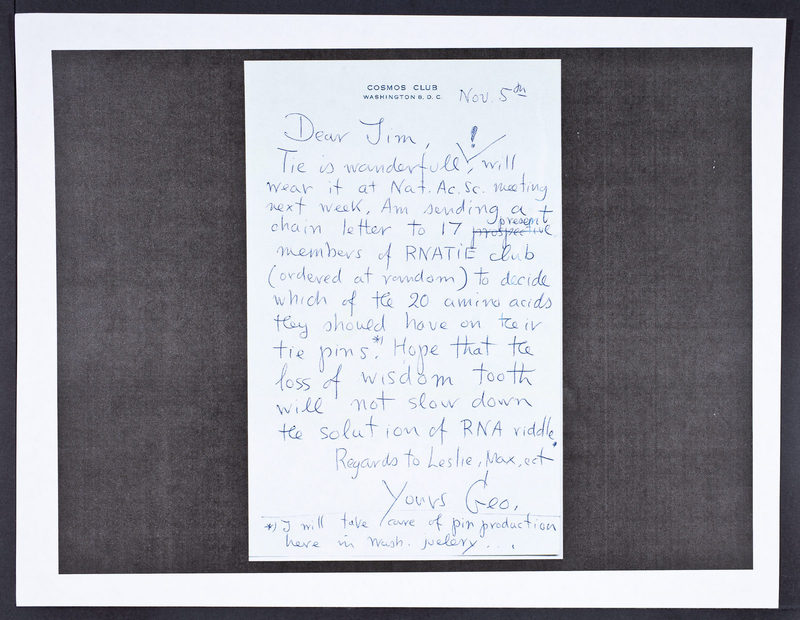 COSMOS CLUB
WASHINGTON 5, D.C.
Nov. 5th
Dear Jim,
Tie is wanderfull!, will
wear it at Nat. Ac. Sc. meeting
next week. Am sending a
chain letter to 17 present prospective
members of RNATIE club
(ordered at random) to decide
which of the 20 amino acids
they should have on their
tie pins*). Hope that the
loss of wisdom tooth
will not slow down
the solution of RNA riddle.
Regards to Leslie, Max, ect
Yours Geo.
*) I will take care of pin production
here in Wash. juelery...